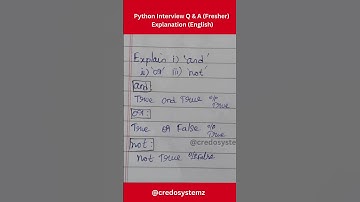 Python Interview Q & A (Fresher)
Explanation (English)
Explain i) 'and'
ii) 'or' iii) 'not'
and:
True and True o/p
True
or:
True or False o/p
True
@credosyste
not:
not True o/p False
@credosystemz